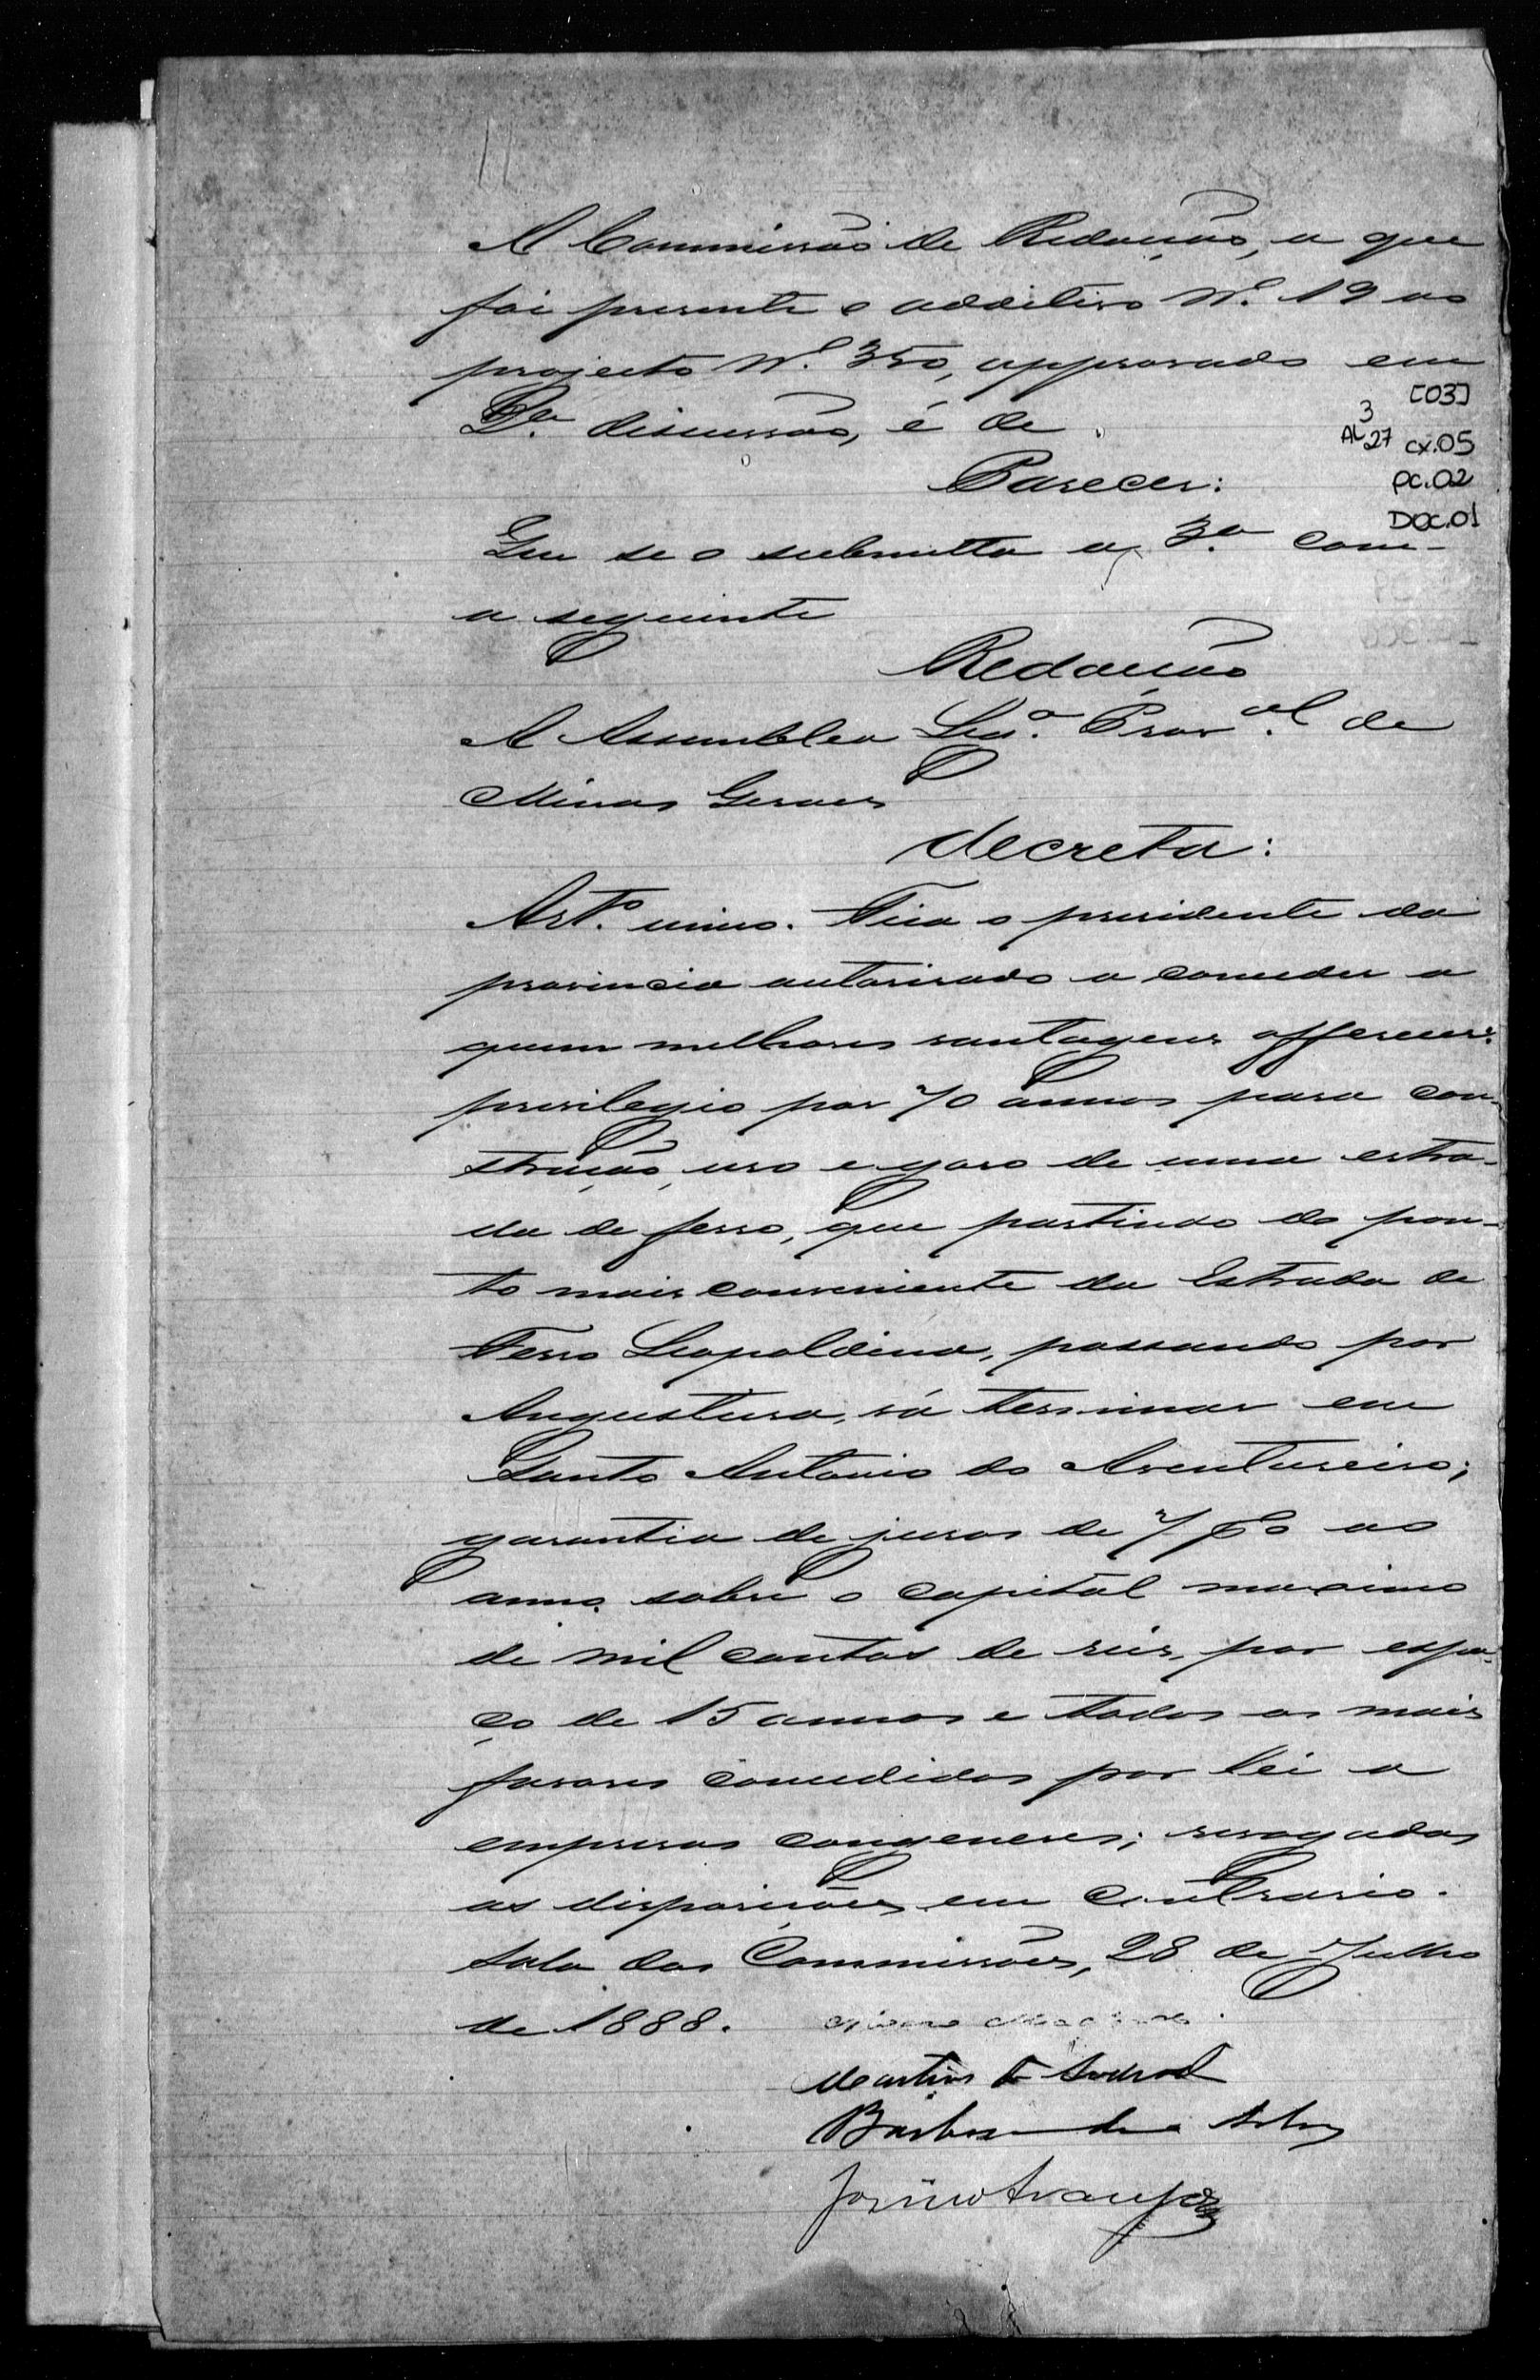 A Commissão de Redacção, a que
foi presente o additivo Nº. 19 ao
projecto Nº. 350, approvado em
2ª. discussão, é de
[03]
3
AL 27 cx.05
PC.02
DOC.01
Parecer:
Que se o submetta a 3ª com
a seguinte
Redacção
A Assemblea Legª. Provªl. de
Minas Geraes
decreta:
Artº. unico. Fica o presidente da
provincia autorisado a conceder a
quem melhores vantagens offerecer:
privilegio por 70 annos para con-
strucção, uso e goso de uma estra-
da de ferro, que partindo do pon-
to mais conveniente da Estrada de
Ferro Leopoldina, passando por
Angustura, vá terminar em
Santo Antonio do Aventureiro;
garantia de juros de 7 % ao
anno sobre o capital maximo
de mil contos de reis, por espa-
ço de 15 annos e todos os mais
favores concedidos por lei a
empresas congeneres; revogadas
as disposições em contrario.
Sala das Commissões, 28 de Julho
de 1888.
Martins de Andrade
Barbosa da Silva
Josino Araujo